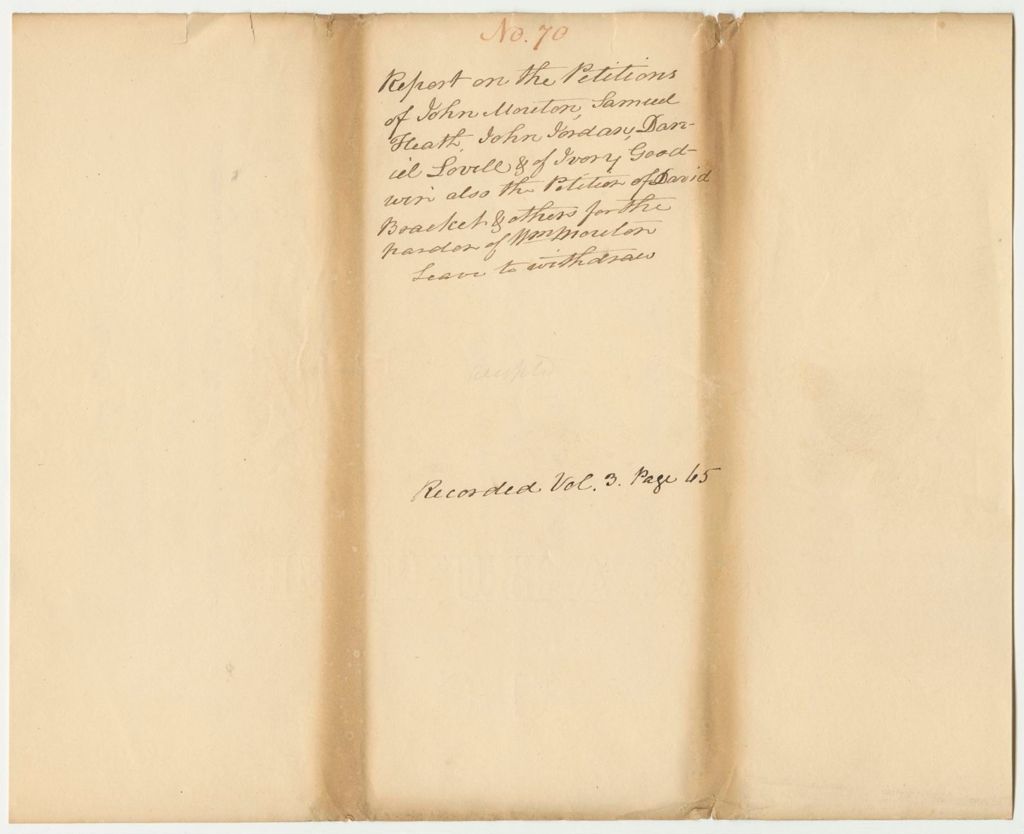 No. 70
Report on the Petitions
of John Moulton, Samuel
Heath, John Jordan, Dan-
iel Lovell & of Ivory Good-
win also the Petition of David
Bracket & others for the
pardon of Wm Moulton
Leave to withdraw
Accepted
Recorded Vol. 3. Page 65